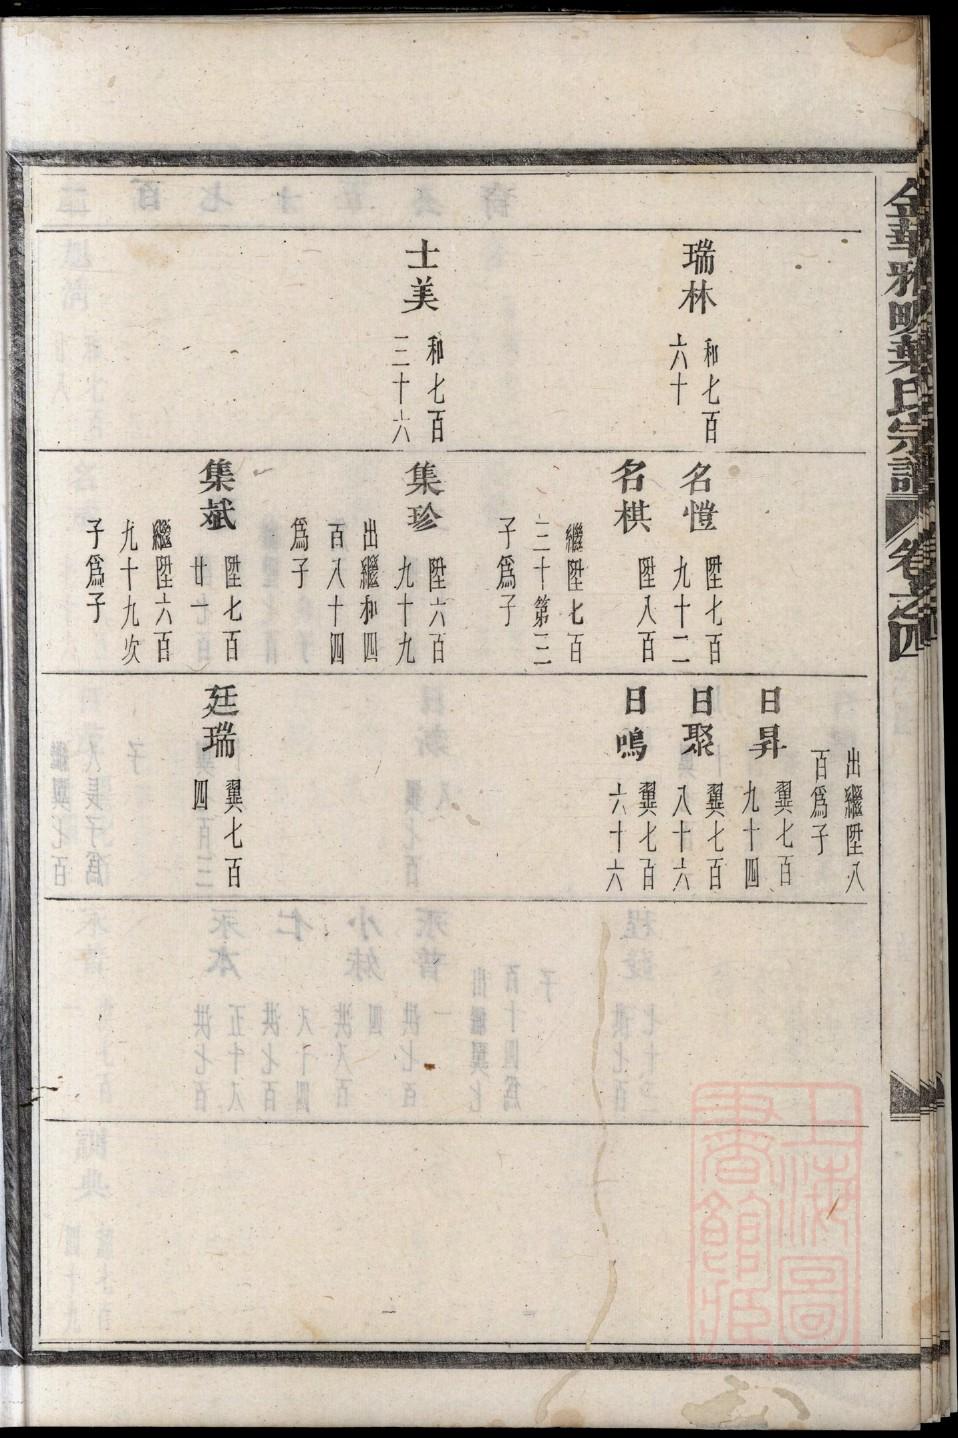 金華雅畈葉氏宗譜 卷之四
瑞林 和七百
六十
士美 和七百
三十六
名愷 陞七百
九十二
名棋 陞八百
繼陞七百
三十第三
子爲子
集珍 陞六百
九十九
出繼和四
百八十四
爲子
集斌 陞七百
廿一
繼陞六百
九十九次
子爲子
出繼陞八
百爲子
日昇 翼七百
九十四
日聚 翼七百
八十六
日鳴 翼七百
六十六
廷瑞 翼七百
四
上海圖
書館藏